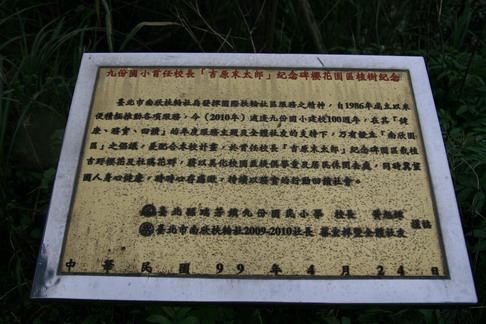 九份國小首任校長「吉原末太郎」紀念碑櫻花園區植樹紀念
臺北市南欣扶輪社為發揮國際扶輪社區服務之精神，自1986年成立以來
便積極推動各項服務，今（2010年）適逢九份國小建校100週年，在其「健
康、勝會、回饋」的年度服務主題及全體社友的支持下，乃有敝主「南欣園
區」之倡議，並配合本校計畫，於首任校長「吉原末太郎」紀念碑區栽植
吉野櫻花及杜鵑花群，藉以美化校園並提供學童及居民休閒去處，同時
國人身心健康，時時心存感激，持續以務實的行動回饋社會。
臺北縣瑞芳鎮九份國民小學 校長 黃旭輝
臺北市南欣扶輪社2009-2010社長 暨全體社友 謹誌
中華民國99年4月24日